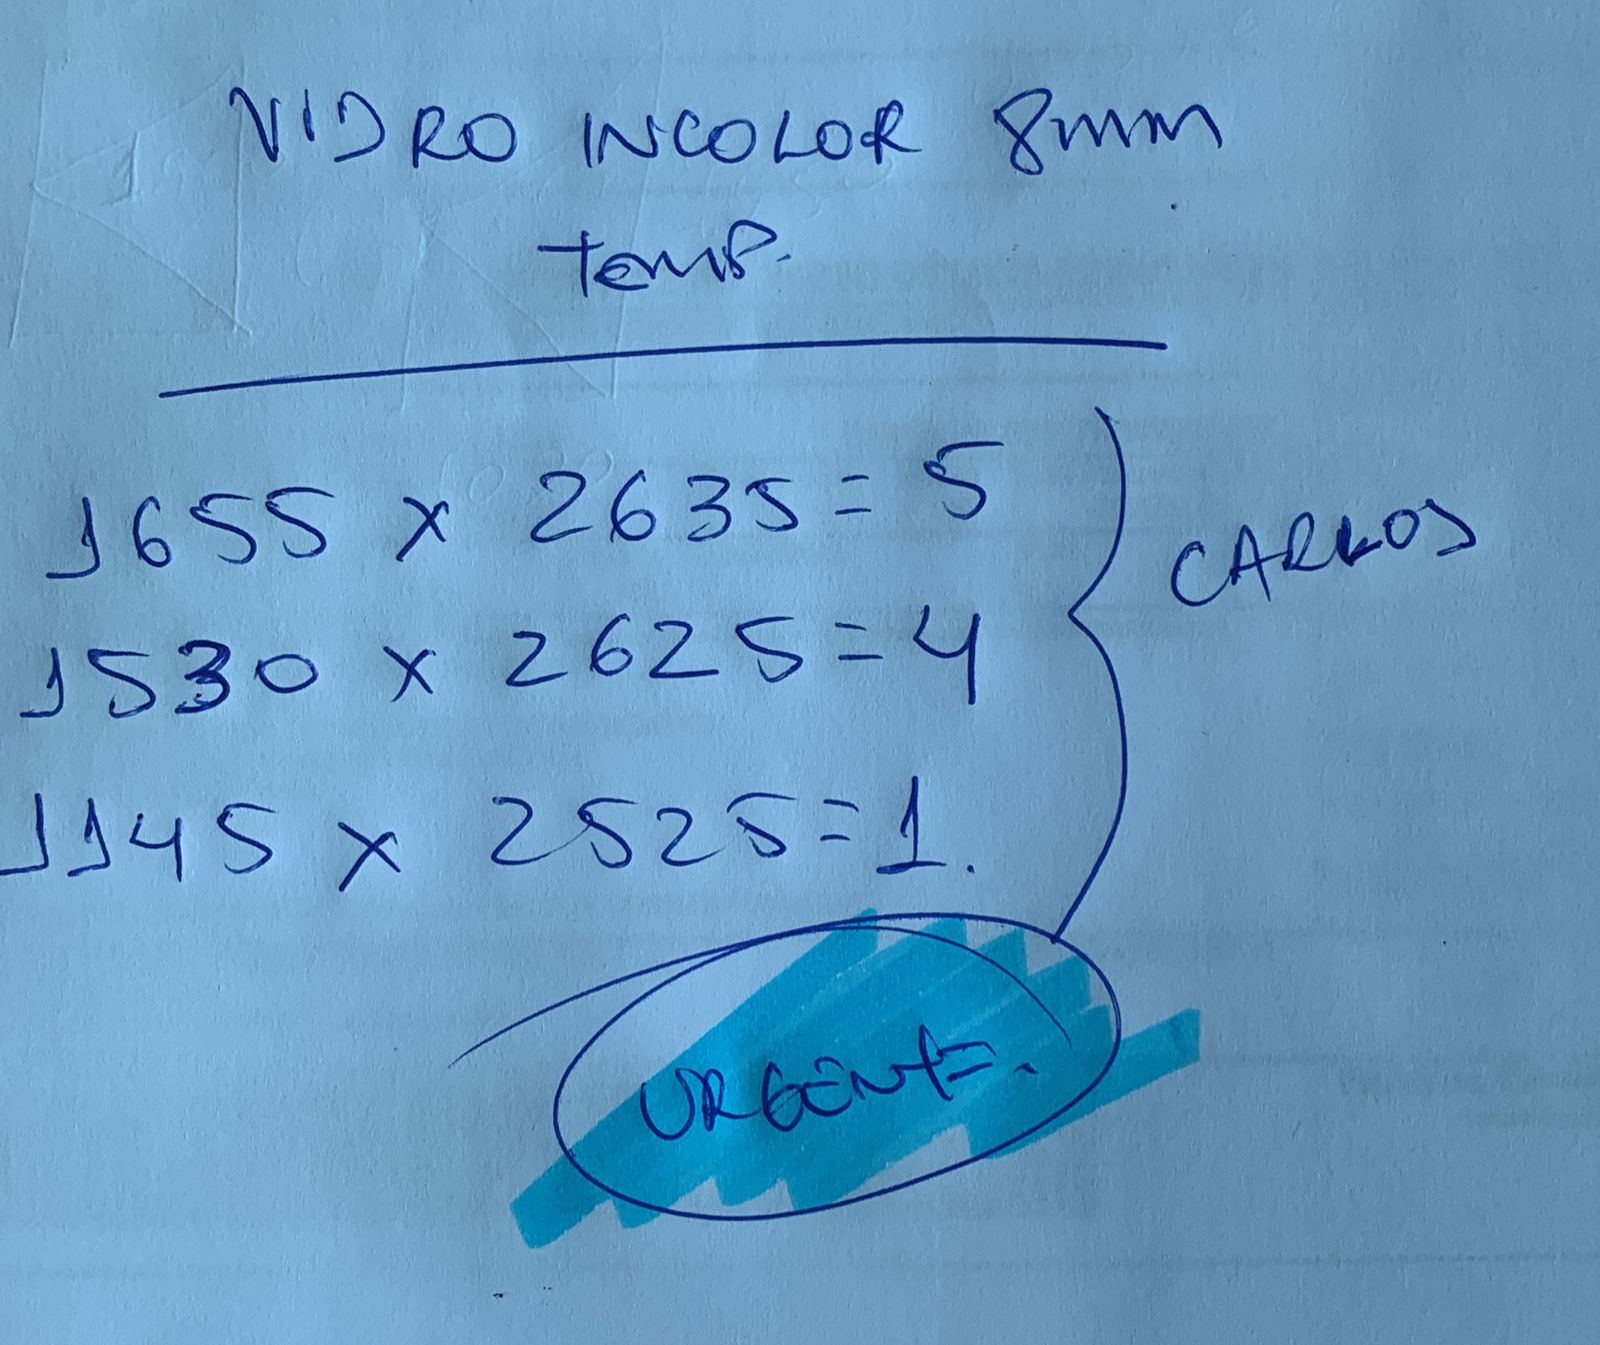 VIDRO INCOLOR 8mm
Temp.
1655 x 2635 = 5
1530 x 2625 = 4
1145 x 2525 = 1.
CARLOS
URGENTE.